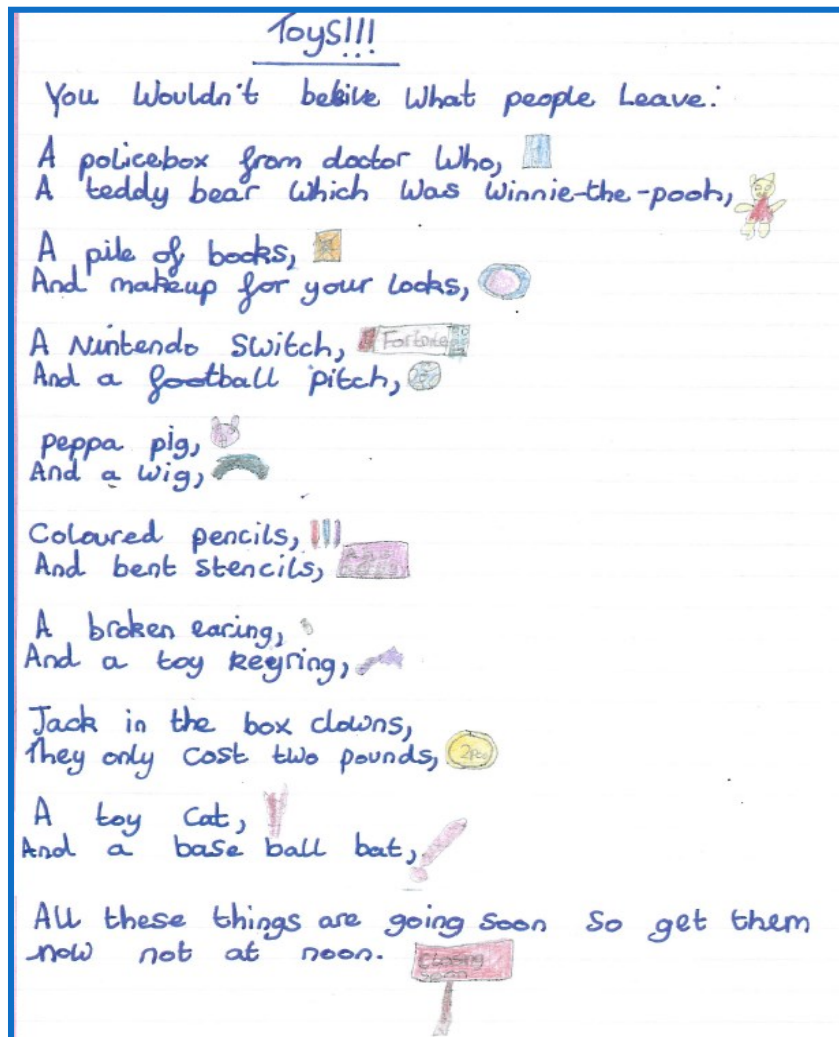 Toys!!!
You Wouldn't belive What people Leave:
A policebox from doctor Who,
A teddy bear which was winnie-the-pooh,
A pile of books,
And makeup for your looks,
A Nintendo Switch,
Fortnite
And a football pitch,
peppa pig,
And a wig,
Coloured pencils,
And bent stencils,
A broken earing,
And a toy keyring,
Jack in the box clowns,
They only cost two pounds,
A toy cat,
And a base ball bat,
All these things are going soon so get them
now not at noon.
Closing
soon